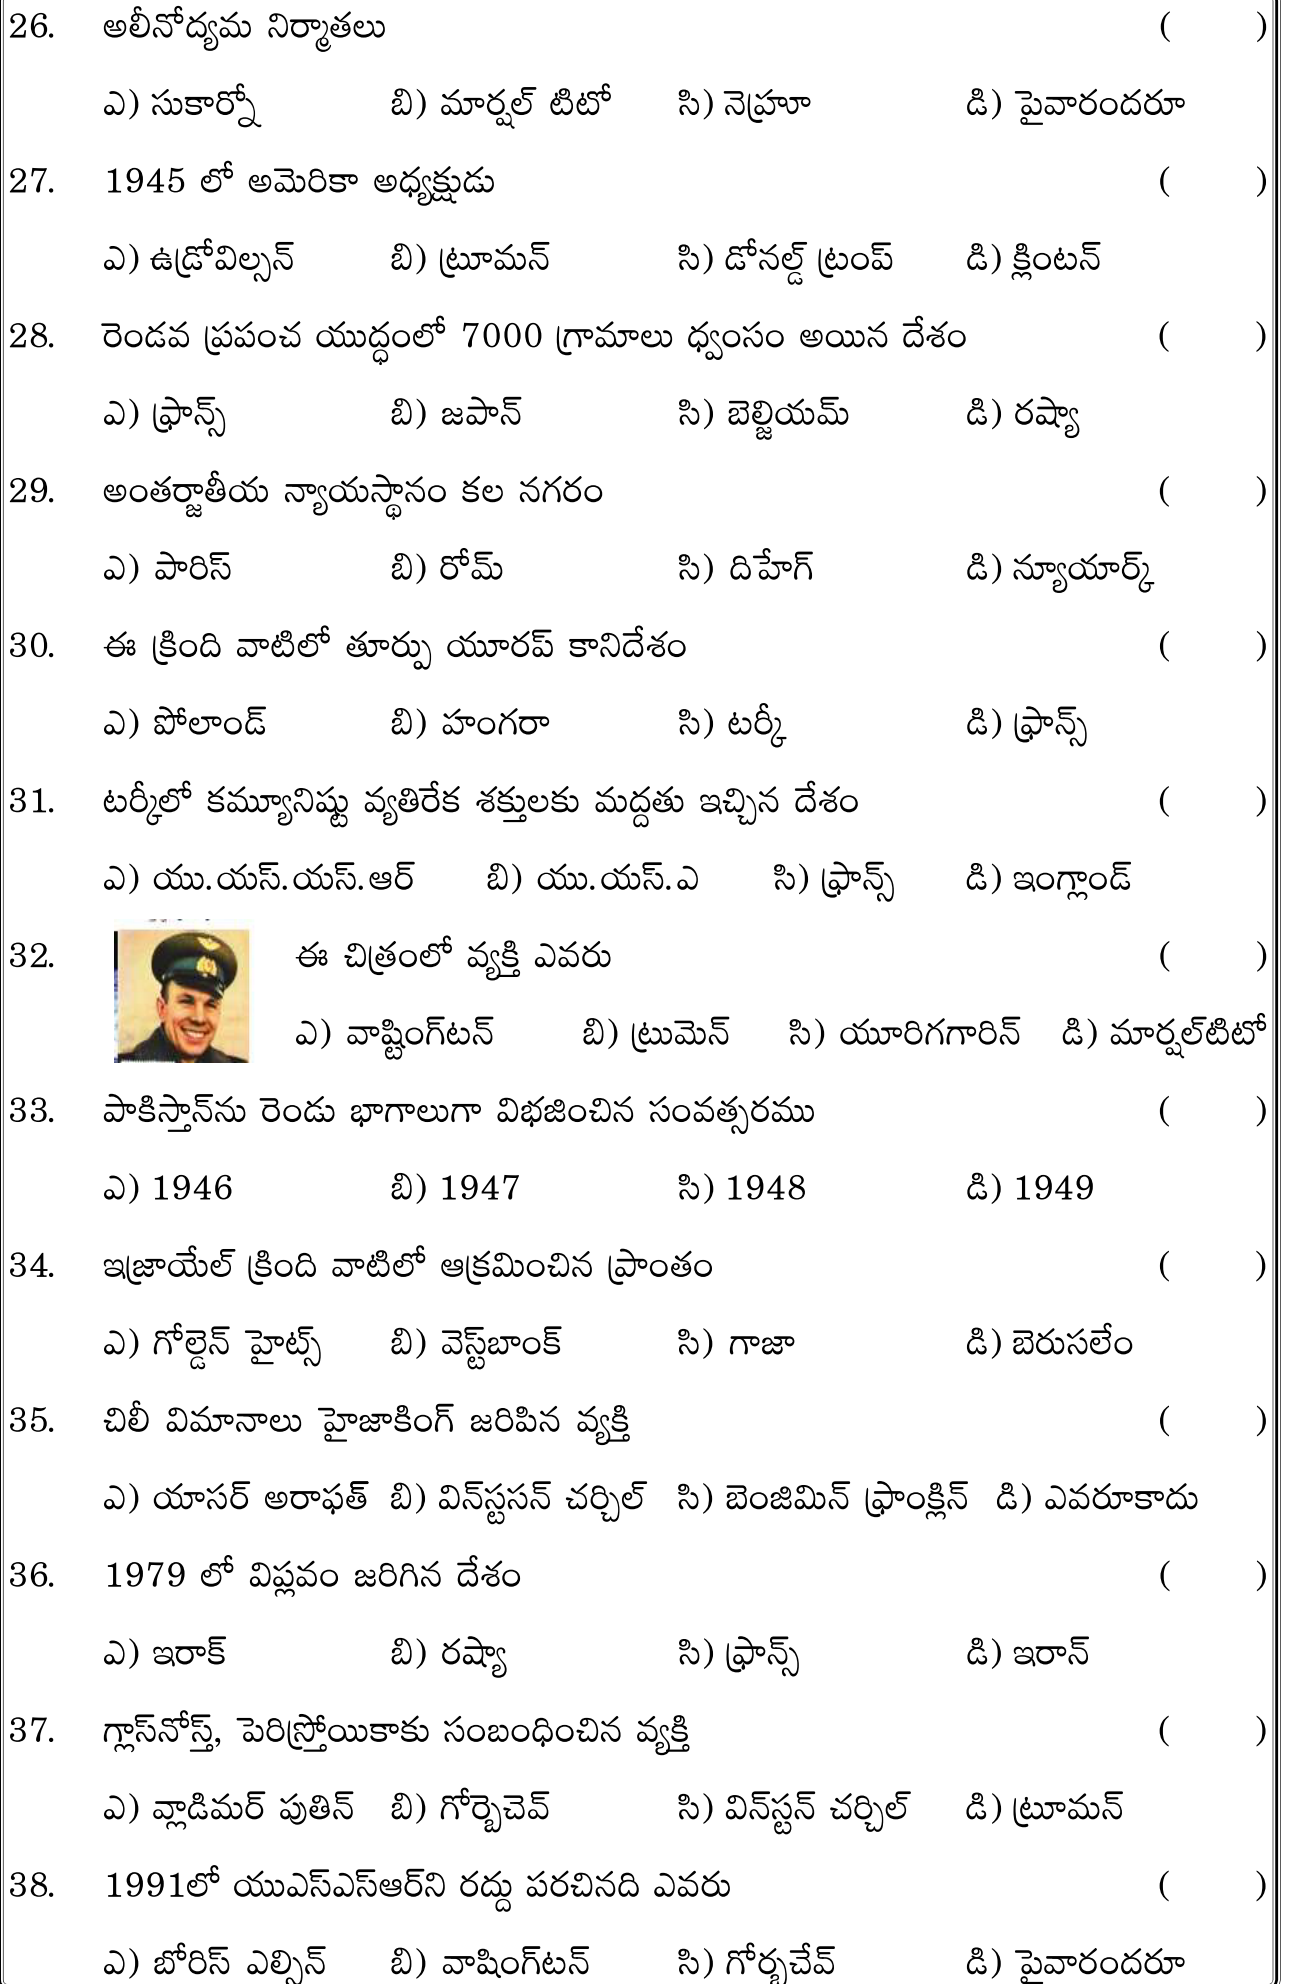 26. అలీనోద్యమ నిర్మాతలు ( )
ఎ) సుకార్నో బి) మార్షల్ టిటో సి) నెహ్రూ డి) పైవారందరూ
27. 1945 లో అమెరికా అధ్యక్షుడు ( )
ఎ) ఉడ్రోవిల్సన్ బి) ట్రూమన్ సి) డోనల్డ్ ట్రంప్ డి) క్లింటన్
28. రెండవ ప్రపంచ యుద్ధంలో 7000 గ్రామాలు ధ్వంసం అయిన దేశం ( )
ఎ) ఫ్రాన్స్ బి) జపాన్ సి) బెల్జియమ్ డి) రష్యా
29. అంతర్జాతీయ న్యాయస్థానం కల నగరం ( )
ఎ) పారిస్ బి) రోమ్ సి) దిహేగ్ డి) న్యూయార్క్
30. ఈ క్రింది వాటిలో తూర్పు యూరప్ కానిదేశం ( )
ఎ) పోలాండ్ బి) హంగరా సి) టర్కీ డి) ఫ్రాన్స్
31. టర్కీలో కమ్యూనిష్టు వ్యతిరేక శక్తులకు మద్దతు ఇచ్చిన దేశం ( )
ఎ) యు.యస్.యస్.ఆర్ బి) యు.యస్.ఎ సి) ఫ్రాన్స్ డి) ఇంగ్లాండ్
32. ఈ చిత్రంలో వ్యక్తి ఎవరు ( )
ఎ) వాష్టింగ్‌టన్ బి) ట్రుమెన్ సి) యూరిగగారిన్ డి) మార్షల్‌టిటో
33. పాకిస్తాన్‌ను రెండు భాగాలుగా విభజించిన సంవత్సరము ( )
ఎ) 1946 బి) 1947 సి) 1948 డి) 1949
34. ఇజ్రాయేల్ క్రింది వాటిలో ఆక్రమించిన ప్రాంతం ( )
ఎ) గోల్డెన్ హైట్స్ బి) వెస్ట్‌బాంక్ సి) గాజా డి) బెరుసలేం
35. చిలీ విమానాలు హైజాకింగ్ జరిపిన వ్యక్తి ( )
ఎ) యాసర్ అరాఫత్ బి) విన్‌స్టసన్ చర్చిల్ సి) బెంజిమిన్ ఫ్రాంక్లిన్ డి) ఎవరూకాదు
36. 1979 లో విప్లవం జరిగిన దేశం ( )
ఎ) ఇరాక్ బి) రష్యా సి) ఫ్రాన్స్ డి) ఇరాన్
37. గ్లాస్‌నోస్త్, పెరిస్త్రోయికాకు సంబంధించిన వ్యక్తి ( )
ఎ) వ్లాడిమర్ పుతిన్ బి) గోర్బెచెవ్ సి) విన్‌స్టన్ చర్చిల్ డి) ట్రూమన్
38. 1991లో యుఎస్ఎస్ఆర్‌ని రద్దు పరచినది ఎవరు ( )
ఎ) బోరిస్ ఎల్సిన్ బి) వాషింగ్‌టన్ సి) గోర్బచేవ్ డి) పైవారందరూ